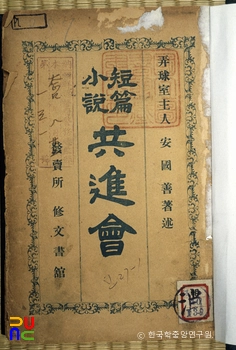 弄球室主人 安國善著述
短篇
小説
共進會
發賣所 修文書館
© 한국학중앙연구원